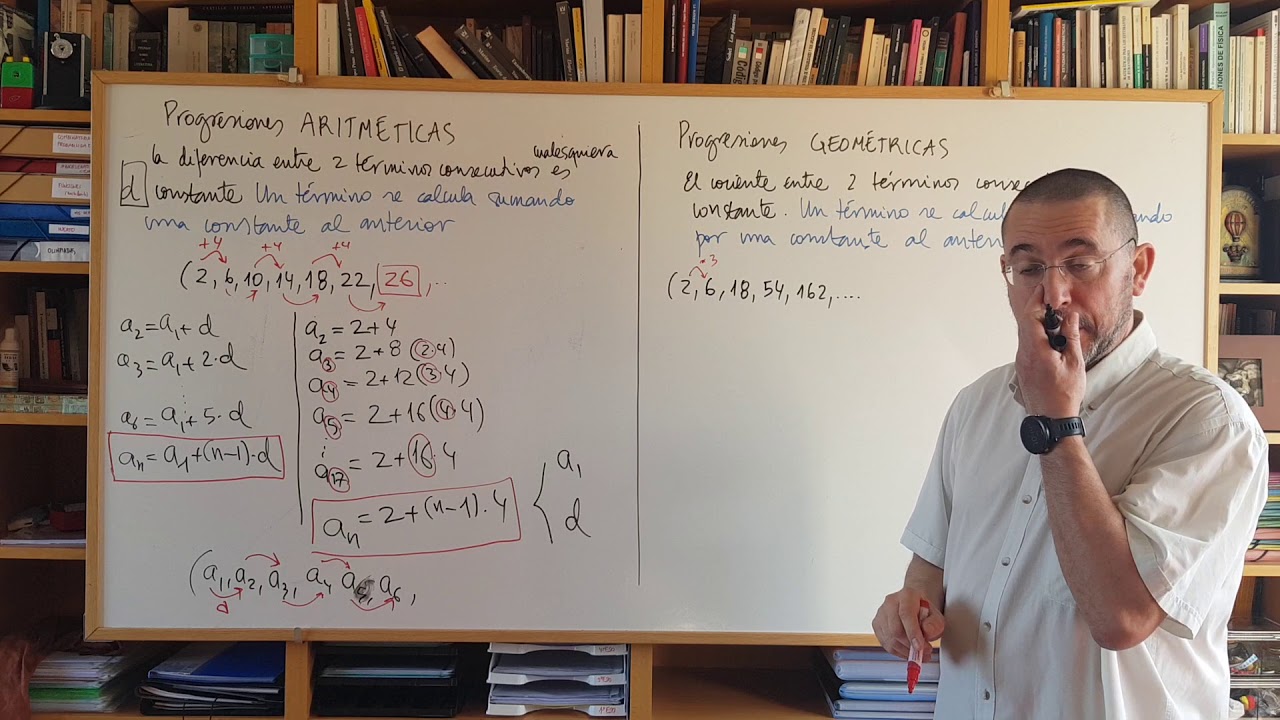 Progresiones ARITMÉTICAS
cualesquiera
la diferencia entre 2 términos consecutivos es
d constante Un término se calcula sumando
una constante al anterior
+4 +4 +4
(2, 6, 10, 14, 18, 22, 26, ..
a2 = a1 + d
a3 = a1 + 2·d
a6 = a1 + 5·d
an = a1 + (n-1)·d
a2 = 2+4
a3 = 2+8 (2·4)
a4 = 2+12 (3·4)
a5 = 2+16 (4·4)
a17 = 2+16·4
an = 2+(n-1)·4
a1
d
(a1, a2, a3, a4, a5, a6,
d
Progresiones GEOMÉTRICAS
El cociente entre 2 términos
constante. Un término se
por una constante al
·3
(2, 6, 18, 54, 162, ....